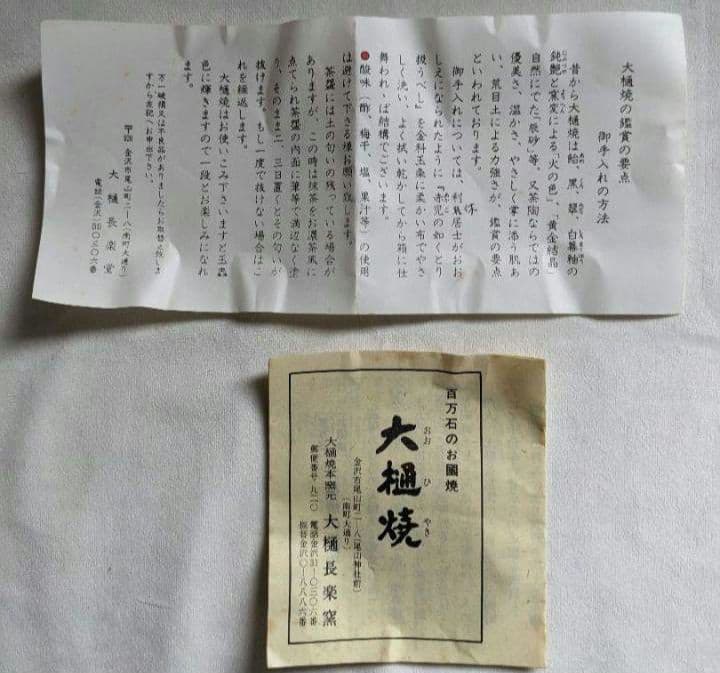 大樋焼の鑑賞の要点
御手入れの方法
昔から大樋焼は飴、黒、翠、白幕釉の
鈍艶と窯変による「火の色」、「黄金結晶」
自然にでた「辰砂」等、又茶陶ならではの
優美さ、温かさ、やさしく掌に添う肌あ
い、荒目土による力強さが、鑑賞の要点
といわれております。
御手入れについては、利休居士がおお
しえになられたように『赤児の如くとり
扱うべし』を金科玉条に柔かい布でやさ
しく洗い、よく拭い乾かしてから箱に仕
舞われゝば結構でございます。
●酸味(酢、梅干、塩、果汁等)の使用
は避けて下さる様お願い致します。
茶盌には土の匂いの残っている場合が
ありますが、この時は抹茶をお濃茶風に
点てられ茶盌の内面に筆等で満辺なく塗
り、そのまま二、三日置くとその匂いが
抜けます。もし一度で抜けない場合はこ
れを繰返します。
大樋焼はお使いこみ下さいますと玉虫
色に輝きますので一段とお楽しみになれ
ます。
万一破損又は不良品がありましたらお取替え致しま
すから左記へお申出下さい。
金沢市尾山町二―八(南町大通り)
大樋長楽堂
電話(金沢)31〇三〇六番
百万石のお國焼
大樋焼
おおひやき
金沢市尾山町二―八(尾山神社前)
(南町大通り)
大樋焼本窯元 大樋長楽窯
郵便番号・九二〇 電話金沢31―〇三〇六番
振替金沢〇―八八八六番